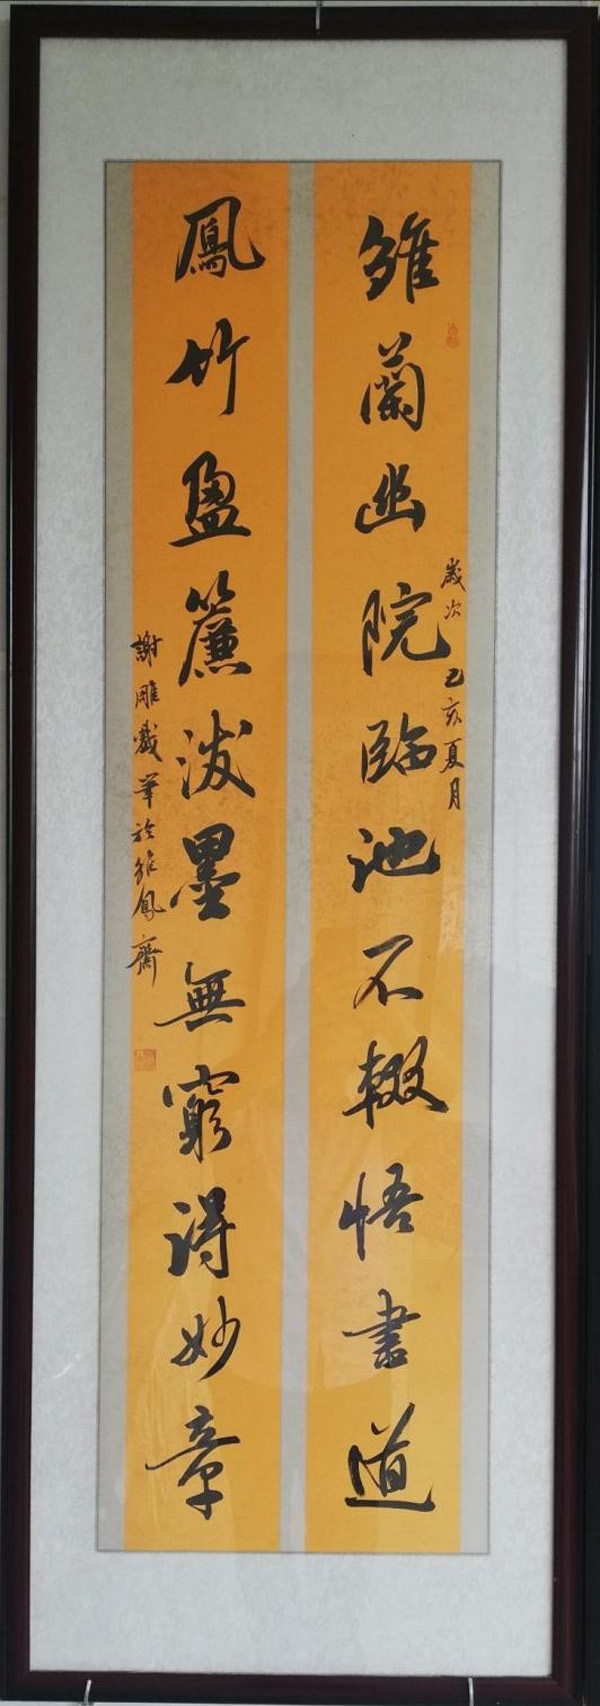 雛蘭幽院臨池不輟悟書道
歲次己亥夏月
鳳竹盈簾潑墨無窮得妙章
謝雕戲筆於雛鳳齋